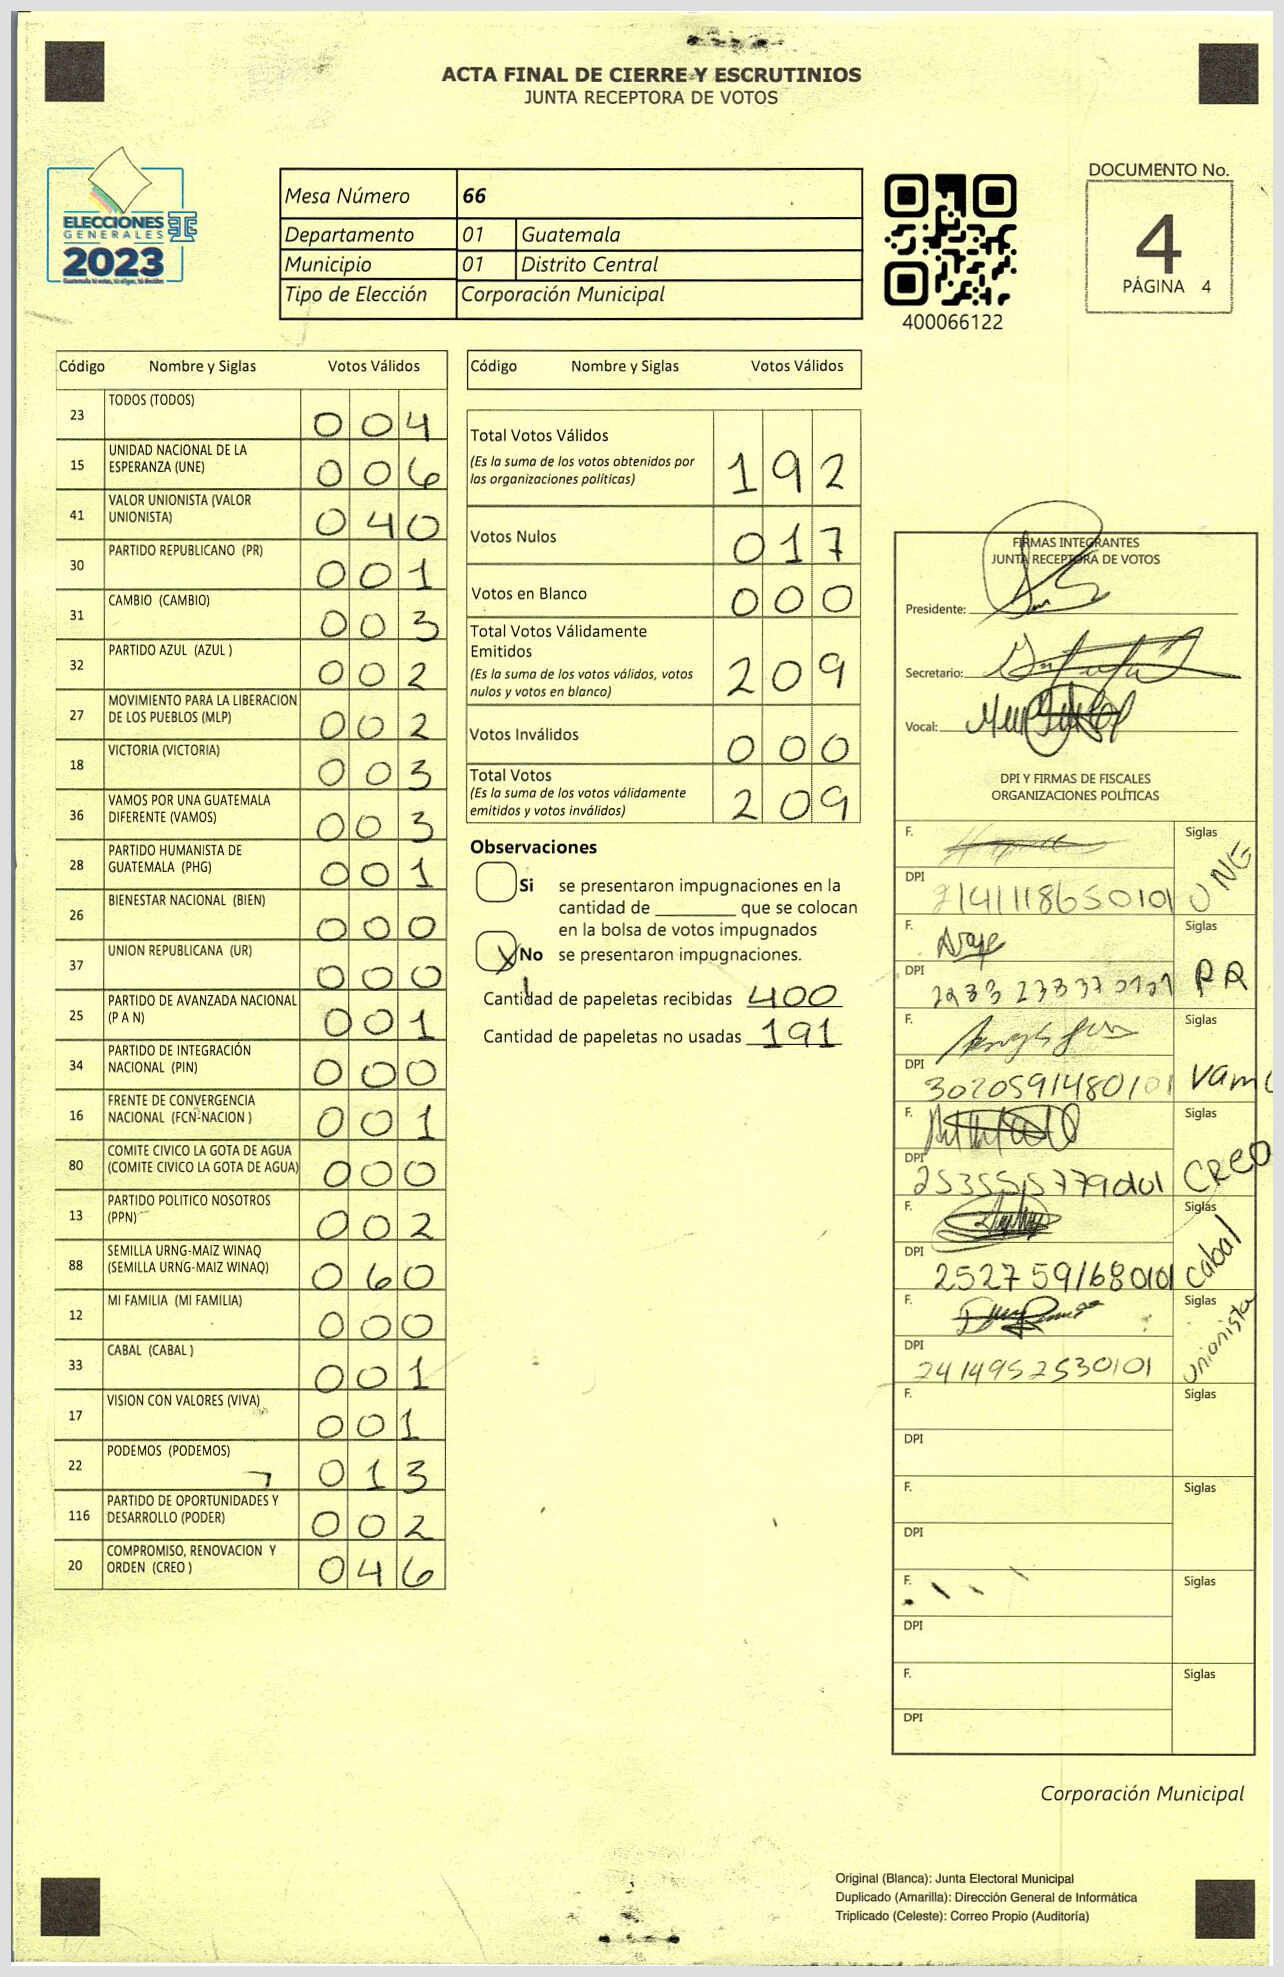 ACTA FINAL DE CIERRE Y ESCRUTINIOS
JUNTA RECEPTORA DE VOTOS
ELECCIONES
GENERALES
2023
Mesa Número 66
Departamento 01 Guatemala
Municipio 01 Distrito Central
Tipo de Elección Corporación Municipal
400066122
DOCUMENTO No.
4
PÁGINA 4
Código Nombre y Siglas Votos Válidos
23 TODOS (TODOS) 004
15 UNIDAD NACIONAL DE LA
ESPERANZA (UNE) 006
41 VALOR UNIONISTA (VALOR
UNIONISTA) 040
30 PARTIDO REPUBLICANO (PR) 001
31 CAMBIO (CAMBIO) 003
32 PARTIDO AZUL (AZUL ) 002
27 MOVIMIENTO PARA LA LIBERACION
DE LOS PUEBLOS (MLP) 002
18 VICTORIA (VICTORIA) 003
36 VAMOS POR UNA GUATEMALA
DIFERENTE (VAMOS) 003
28 PARTIDO HUMANISTA DE
GUATEMALA (PHG) 001
26 BIENESTAR NACIONAL (BIEN) 000
37 UNION REPUBLICANA (UR) 000
25 PARTIDO DE AVANZADA NACIONAL
(P A N) 001
34 PARTIDO DE INTEGRACIÓN
NACIONAL (PIN) 000
16 FRENTE DE CONVERGENCIA
NACIONAL (FCN-NACION ) 001
80 COMITE CIVICO LA GOTA DE AGUA
(COMITE CIVICO LA GOTA DE AGUA) 000
13 PARTIDO POLITICO NOSOTROS
(PPN) 002
88 SEMILLA URNG-MAIZ WINAQ
(SEMILLA URNG-MAIZ WINAQ) 060
12 MI FAMILIA (MI FAMILIA) 000
33 CABAL (CABAL ) 001
17 VISION CON VALORES (VIVA) 001
22 PODEMOS (PODEMOS) 013
116 PARTIDO DE OPORTUNIDADES Y
DESARROLLO (PODER) 002
20 COMPROMISO, RENOVACION Y
ORDEN (CREO ) 046
Código Nombre y Siglas Votos Válidos
Total Votos Válidos
(Es la suma de los votos obtenidos por
las organizaciones políticas) 192
Votos Nulos 017
Votos en Blanco 000
Total Votos Válidamente
Emitidos
(Es la suma de los votos válidos, votos
nulos y votos en blanco) 209
Votos Inválidos 000
Total Votos
(Es la suma de los votos válidamente
emitidos y votos inválidos) 209
Observaciones
Si se presentaron impugnaciones en la
cantidad de ________ que se colocan
en la bolsa de votos impugnados
X No se presentaron impugnaciones.
Cantidad de papeletas recibidas 400
Cantidad de papeletas no usadas 191
FIRMAS INTEGRANTES
JUNTA RECEPTORA DE VOTOS
Presidente:
Secretario:
Vocal:
DPI Y FIRMAS DE FISCALES
ORGANIZACIONES POLÍTICAS
F. Siglas
DPI UNE
F. Siglas
DPI PR
F. Siglas
DPI 3020591480101
F. Siglas
DPI CREO
F. Siglas
DPI 2527591680101 Cabal
F. Siglas
DPI 2414952530101 unionista
F. Siglas
DPI
F. Siglas
DPI
F. Siglas
DPI
F. Siglas
DPI
Corporación Municipal
Original (Blanca): Junta Electoral Municipal
Duplicado (Amarilla): Dirección General de Informática
Triplicado (Celeste): Correo Propio (Auditoría)